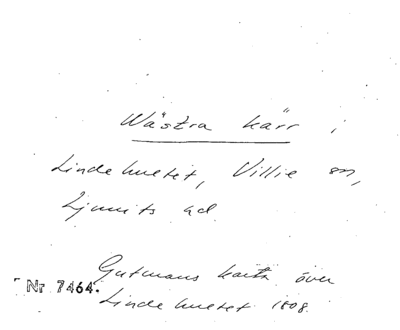 Wästra kärr i
Lindehultet, Villie sn,
Ljunits hd
Gutmans karta över
Nr 7464.
Lindehultet 1808.